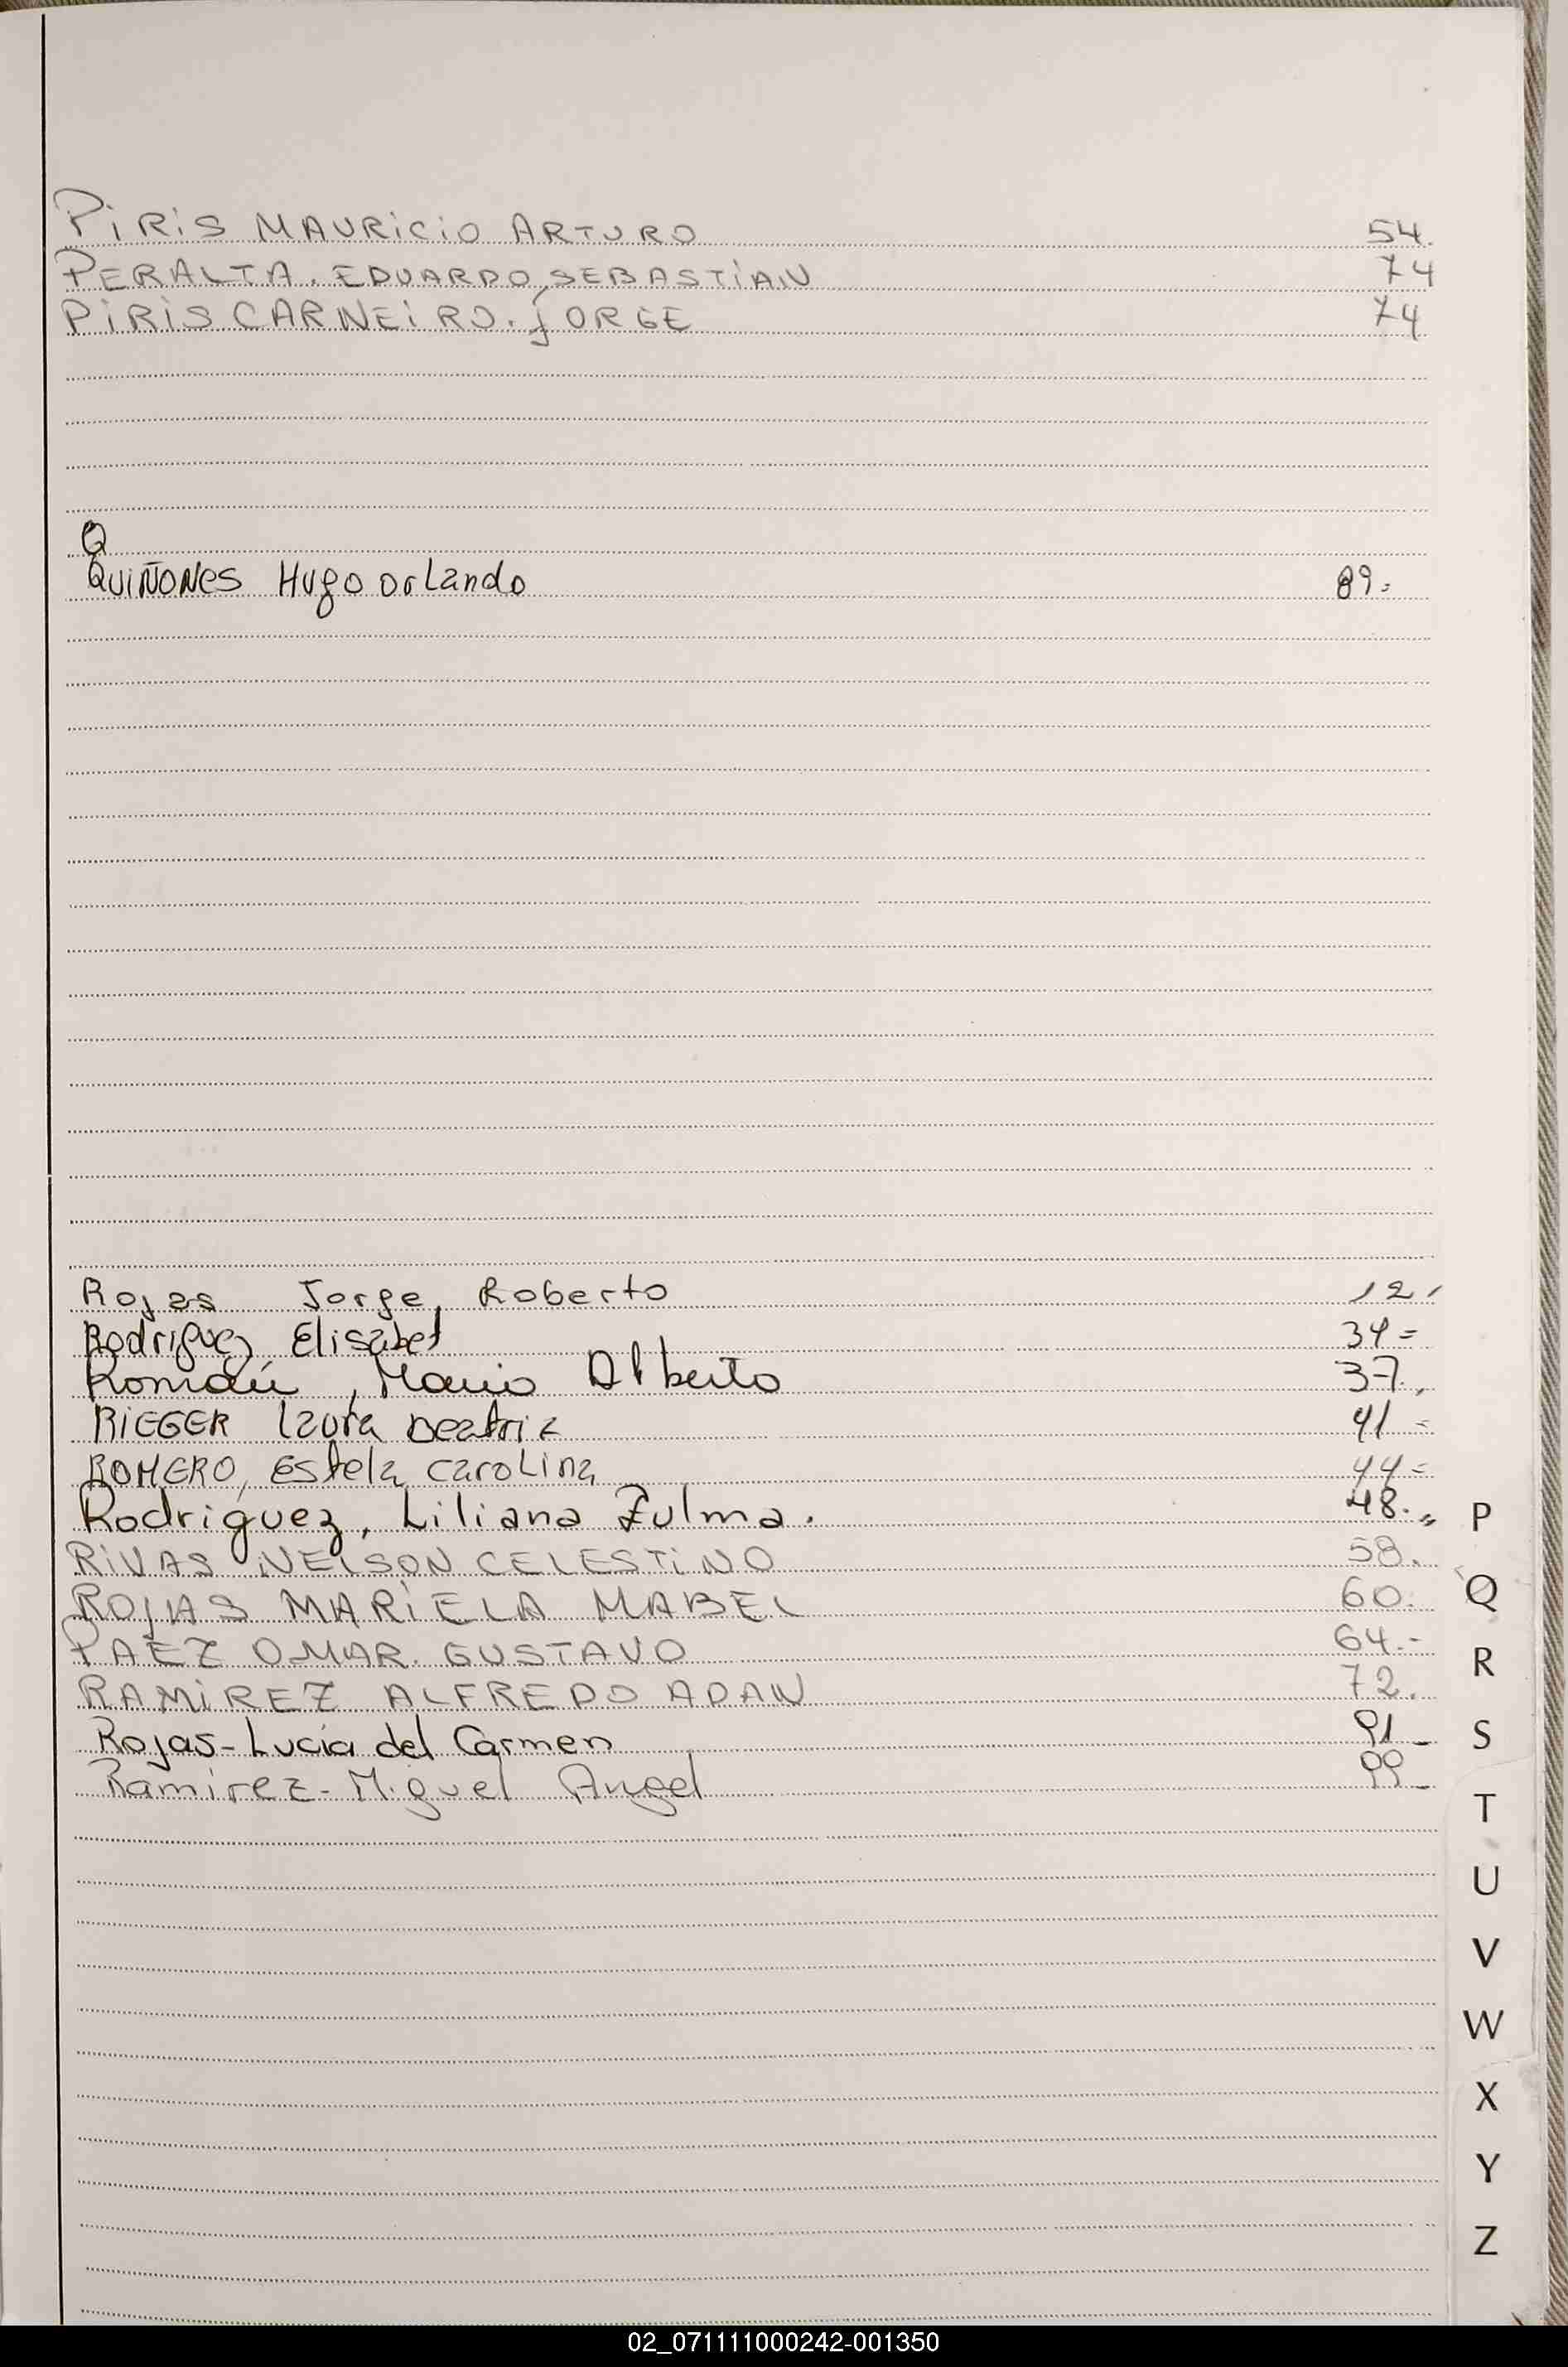 PIRIS MAURICIO ARTURO 54.
PERALTA. EDUARDO SEBASTIAN 74
PIRIS CARNEIRO. JORGE 74
Q
QUIÑONES Hugo orlando 89.
Rojas Jorge Roberto 12,
Rodriguez Elisabet 34=
Román, Mario Alberto 37.,
RIEGER laura beatriz 41=
ROMERO, Estela carolina 44=
Rodríguez, Liliana Zulma. 48.,,
RIVAS NELSON CELESTINO 58.
ROJAS MARIELA MABEL 60.
PAEZ OMAR. GUSTAVO 64.-
RAMIREZ ALFREDO ADAN 72.
Rojas-Lucía del Carmen 91-
Ramirez-Miguel Angel 99-
P
Q
R
S
T
U
V
W
X
Y
Z
02_071111000242-001350